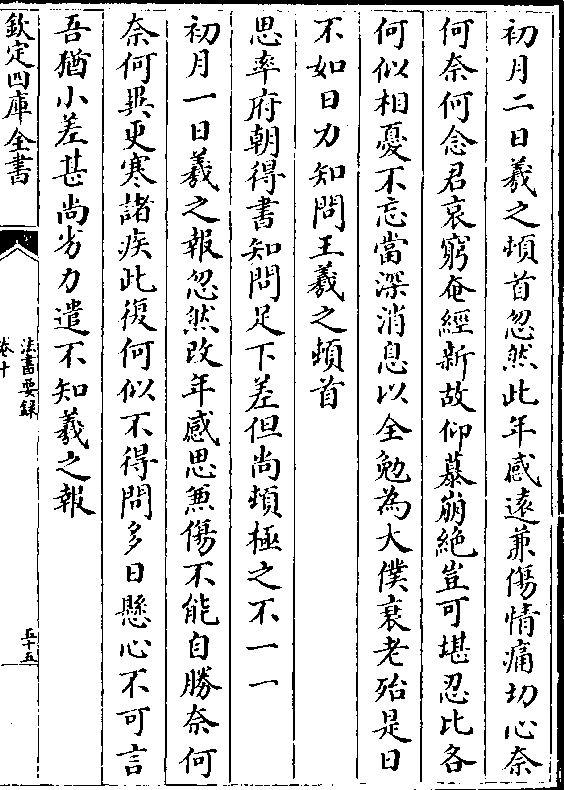 初月二日羲之頓首忽然此年感遠兼傷情痛切心奈
何奈何念君哀窮奄經新故仰慕崩絶豈可堪忍比各
何似相憂不忘當深消息以全勉為大僕衰老殆是日
不如日力知問王羲之頓首
思率府朝得書知問足下差但尚頓極之不一一
初月一日羲之報忽然改年感思兼傷不能自勝奈何
奈何異更寒諸疾此復何似不得問多日懸心不可言
吾猶小差甚尚劣力遣不知羲之報
欽定四庫全書
法書要錄
卷十
五十五